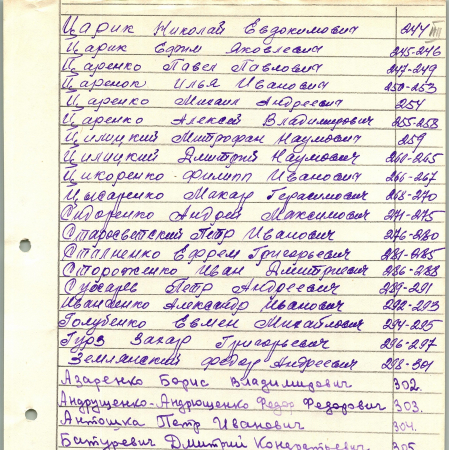 Царик Николай Евдокимович 244
Царик Ефим Яковлевич 245-246
Царенко Павел Павлович 247-249
Царенок Илья Иванович 250-253
Царенко Михаил Андреевич 254
Царенко Алексей Владимирович 255-258
Цилицкий Митрофан Наумович 259
Цилицкий Дмитрий Наумович 260-265
Цикоренко Филипп Иванович 266-267
Цысаренко Макар Герасимович 268-270
Сидоренко Андрей Максимович 271-275
Старосветский Петр Иванович 276-280
Сталненко Ефрем Григорьевич 281-285
Стороженко Иван Дмитриевич 286-288
Сухарев Петр Андреевич 289-291
Иваненко Александр Иванович 292-293
Голубенко Евмен Михайлович 294-295
Гурз Захар Григорьевич 296-297
Землянский Федор Андреевич 298-301
Азаренко Борис Владимирович 302.
Андрущенко-Андрющенко Федор Федорович 303.
Антошка Петр Иванович 304.
Батуревич Дмитрий Кондратьевич 305